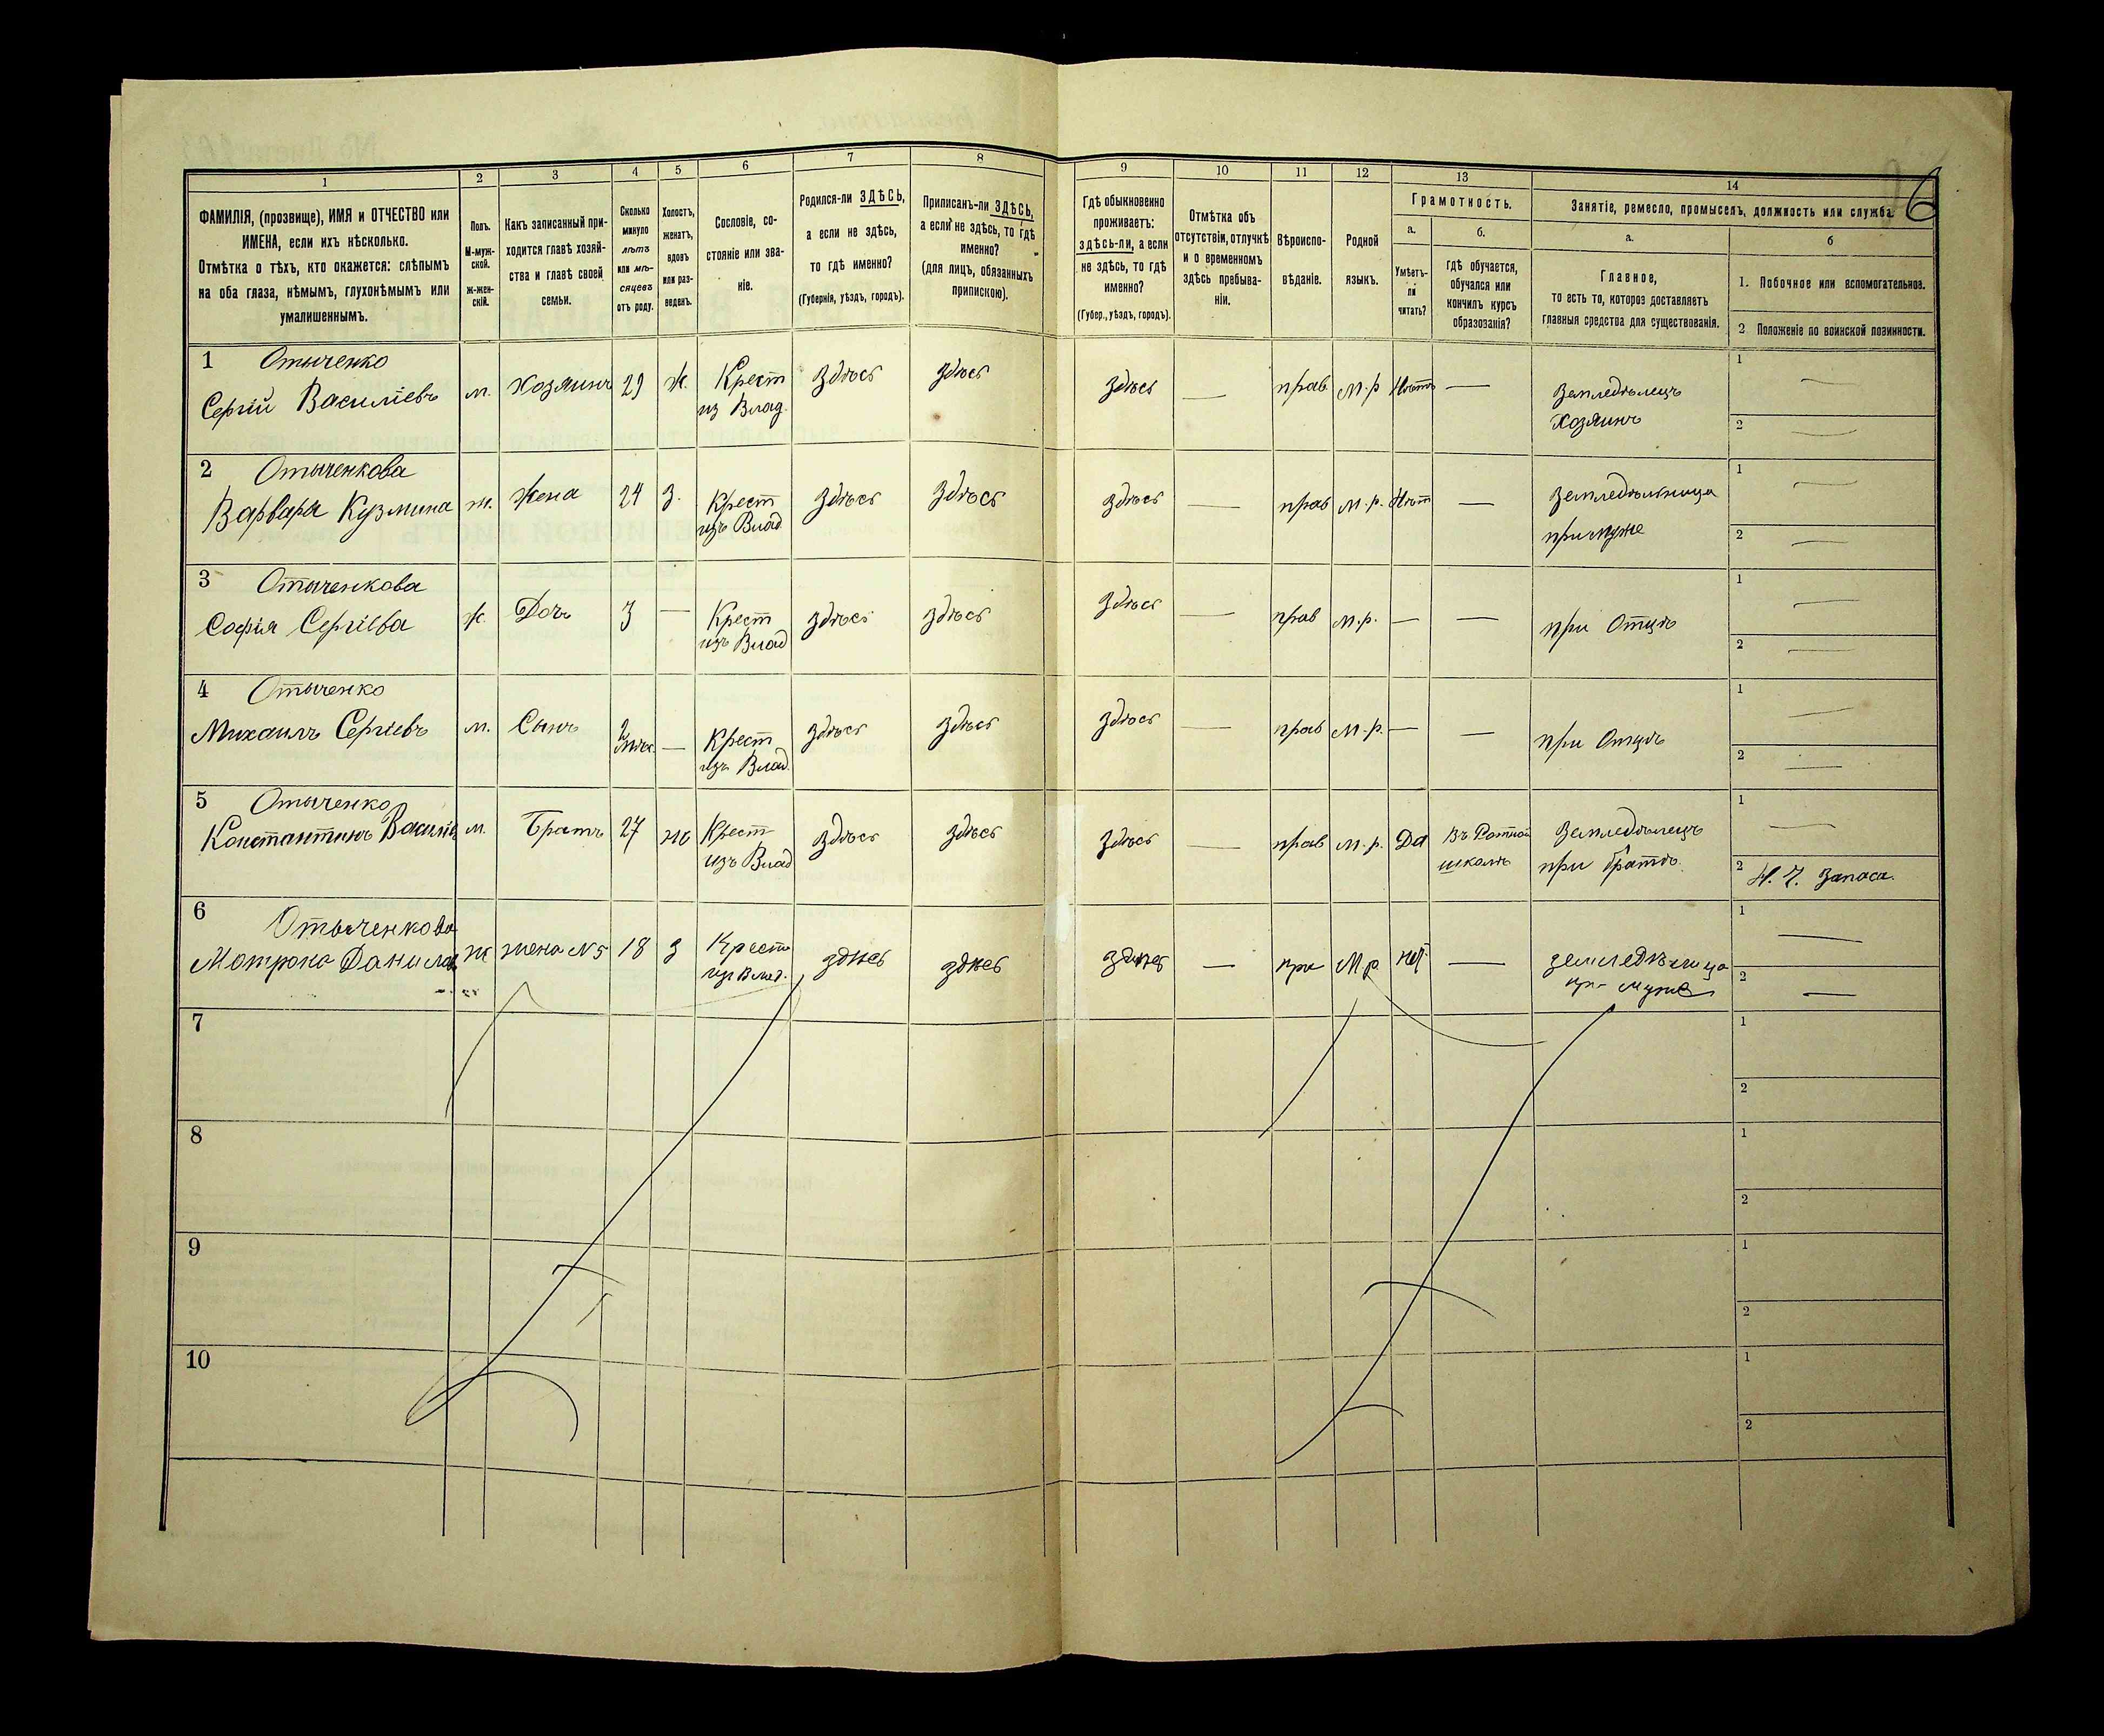 6
1 2 3 4 5 6 7 8 9 10 11 12 13 14
ФАМИЛІЯ, (прозвище), ИМЯ и ОТЧЕСТВО или
ИМЕНА, если ихъ нѣсколько.
Отмѣтка о тѣхъ, кто окажется: слѣпымъ
на оба глаза, нѣмымъ, глухонѣмымъ или
умалишеннымъ.
Полъ.
М-муж-
ской.
Ж-жен-
скій.
Какъ записанный при-
ходится главѣ хозяй-
ства и главѣ своей
семьи.
Сколько
минуло
лѣтъ
или мѣ-
сяцевъ
отъ роду.
Холостъ,
женатъ,
вдовъ
или раз-
веденъ.
Сословіе, со-
стояніе или зва-
ніе.
Родился-ли ЗДѢСЬ,
а если не здѣсь,
то гдѣ именно?
(Губернія, уѣздъ, городъ).
Приписанъ-ли ЗДѢСЬ,
а если не здѣсь, то гдѣ
именно?
(для лицъ, обязанныхъ
припискою).
Гдѣ обыкновенно
проживаетъ:
здѣсь-ли, а если
не здѣсь, то гдѣ
именно?
(Губер., уѣздъ, городъ).
Отмѣтка объ
отсутствіи, отлучкѣ
и о временномъ
здѣсь пребыва-
ніи.
Вѣроиспо-
вѣданіе.
Родной
языкъ.
Грамотность.
а.
Умѣетъ-
ли
читать?
б.
Гдѣ обучается,
обучался или
кончилъ курсъ
образованія?
Занятіе, ремесло, промыселъ, должность или служба.
а.
Главное,
то есть то, которое доставляетъ
главныя средства для существованія.
б
1. Побочное или вспомогательное.
2 Положеніе по воинской повинности.
1 Отыченко
Сергій Василіевъ м. Хозяинъ 29 ж. Крест здѣсь здѣсь здѣсь — прав. м.р Нѣтъ — Земледѣлецъ 1 —
из Влад. Хозяинъ 2 —
2 Отыченкова
Варвара Кузмина ж. Жена 24 З. Крест здѣсь здѣсь здѣсь — прав м.р. Нѣт — Земледѣльница 1 —
изъ Влад при муже 2 —
3 Отыченкова
Софія Сергіева ж. Дочь 3 — Крест здѣсь здѣсь здѣсь — прав м.р. — — при Отцѣ 1 —
изъ Влад 2 —
4 Отыченко
Михаилъ Сергіевъ м. Сынъ 2 — Крест здѣсь здѣсь здѣсь — прав м.р. — — при Отцѣ 1 —
мѣс. изъ Влад. 2 —
5 Отыченко
Константинъ Василіе м. Братъ 27 ж Крест здѣсь здѣсь здѣсь — прав м.р. Да Въ Ротной Земледѣлецъ 1 —
изъ Влад школѣ при братѣ. 2 Н. Ч. Запаса.
6 Отыченкова
Мотрона Данилов ж жена N5 18 з Крест здѣсь здѣсь здѣсь — пра М.р. нет — земледѣлица 1 —
изъ Влад. при мужѣ 2 —
7 1
2
8 1
2
9 1
2
10 1
2